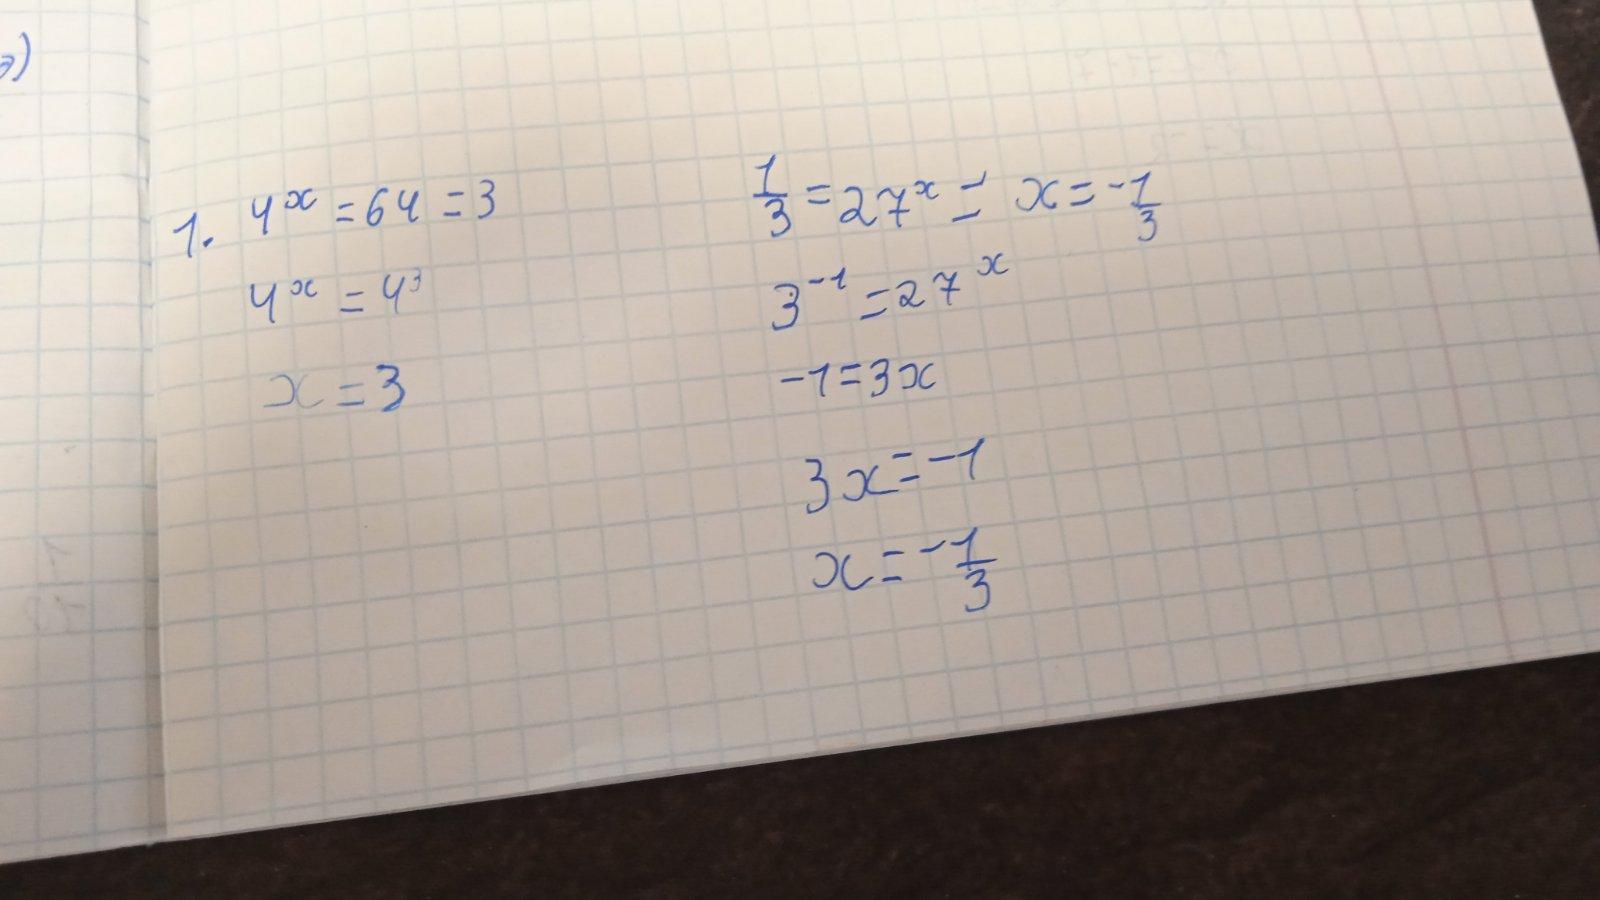 э)
1. 4^x = 64 = 3
4^x = 4^3
x = 3
1/3 = 27^x = x = -1/3
3^-1 = 27^x
-1 = 3x
3x = -1
x = -1/3